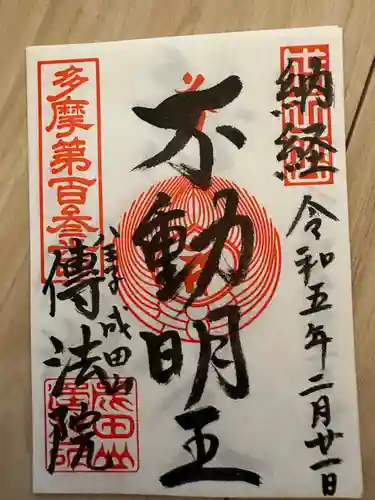 納経
令和五年二月廿一日
不動明王
八王子
成田山
傳法院
多摩第百参番